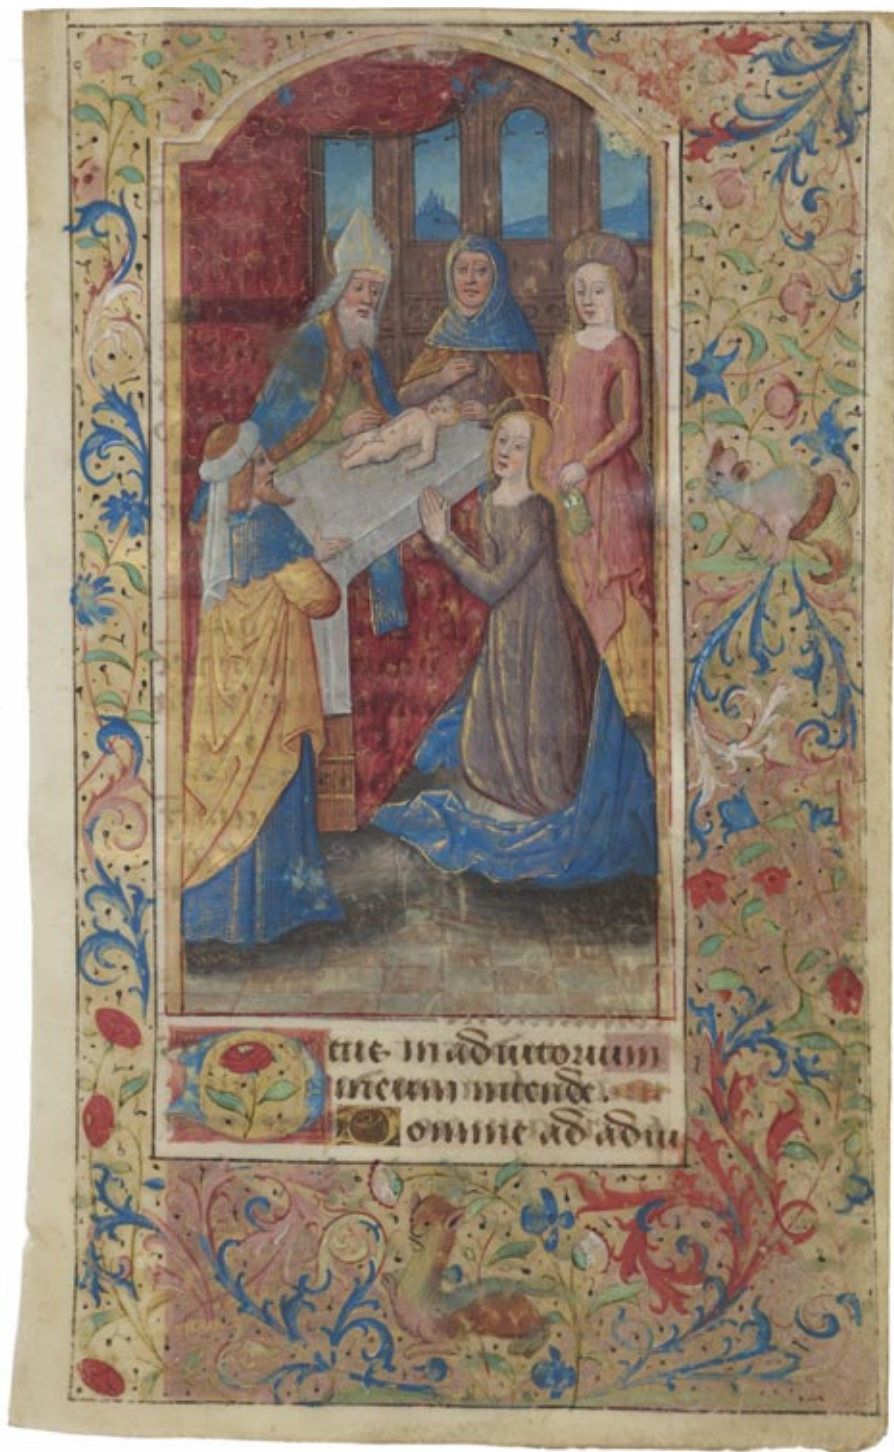 Deus in adiutorium
meum intende.
Domine ad adiu